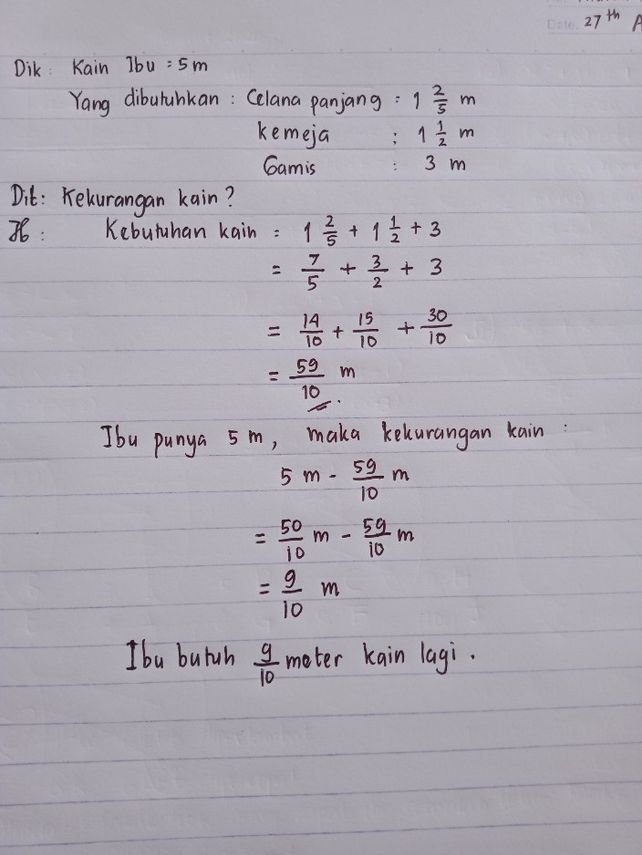 Date. 27 th A
Dik : Kain Ibu : 5 m
Yang dibutuhkan : Celana panjang : 1 2/5 m
kemeja : 1 1/2 m
Gamis : 3 m
Dit: Kekurangan kain ?
Kebutuhan kain = 1 2/5 + 1 1/2 + 3
= 7/5 + 3/2 + 3
= 14/10 + 15/10 + 30/10
= 59/10 m
Ibu punya 5 m, maka kekurangan kain :
5 m - 59/10 m
= 50/10 m - 59/10 m
= 9/10 m
Ibu butuh 9/10 meter kain lagi .